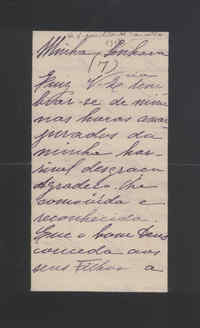 Minha Senhora
(7)
Quiz V. Exª lem
brar-se de mim
nas horas amar
guradas da
minha hor-
rivel desgraça
Agradeço-lhe
comovida e
reconhecida
Que o bom Deus
conceda aos
seus Filhos a